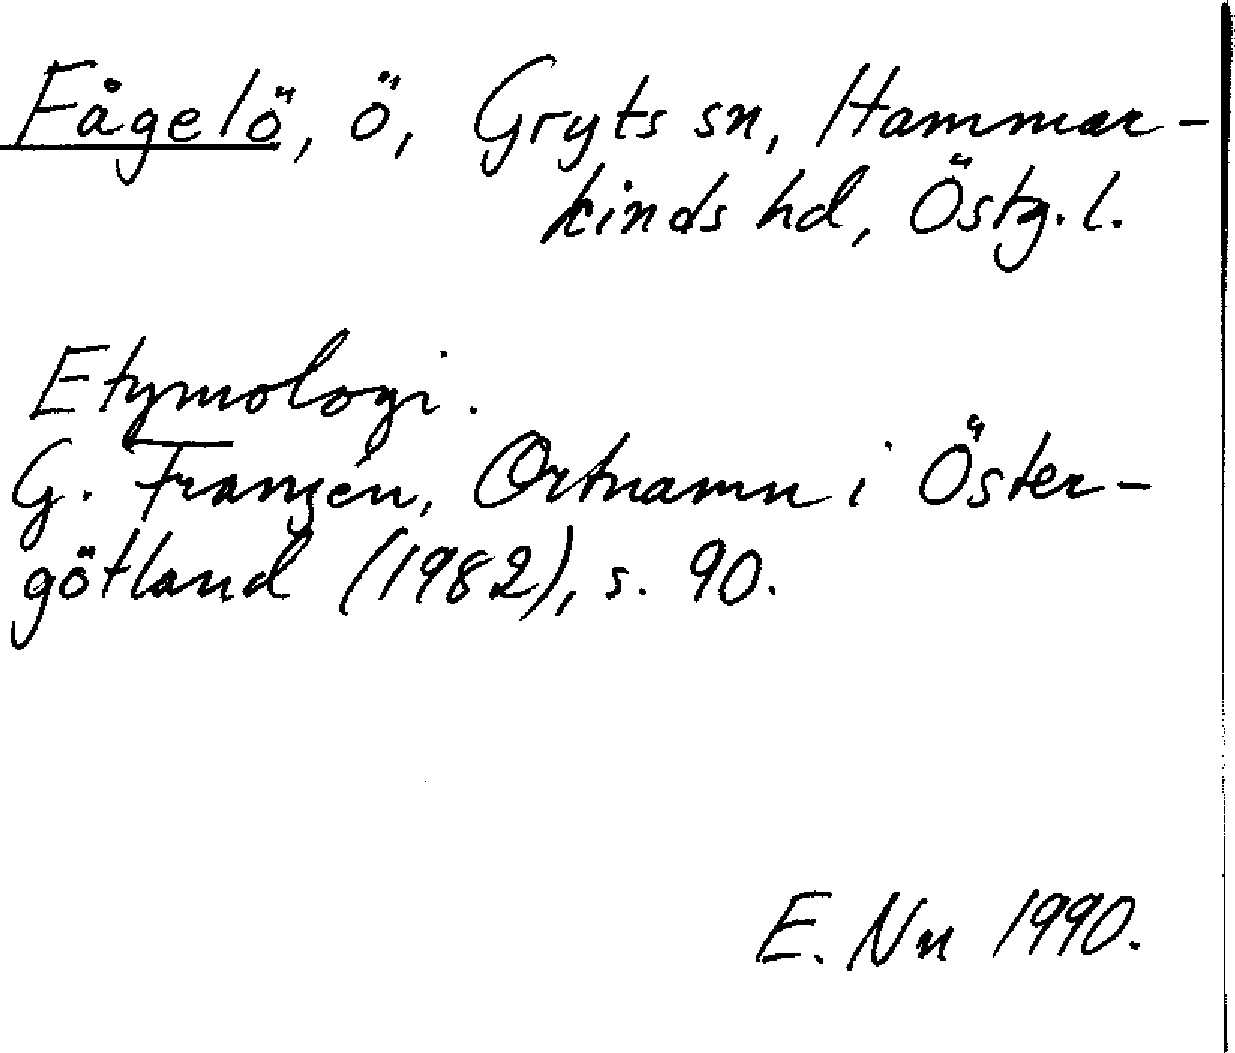 Fågelö, ö, Gryts sn, Hammar-
kinds hd, Östg.l.
Etymologi.
G. Franzén, Ortnamn i Öster-
götland (1982), s. 90.
E. Nn 1990.